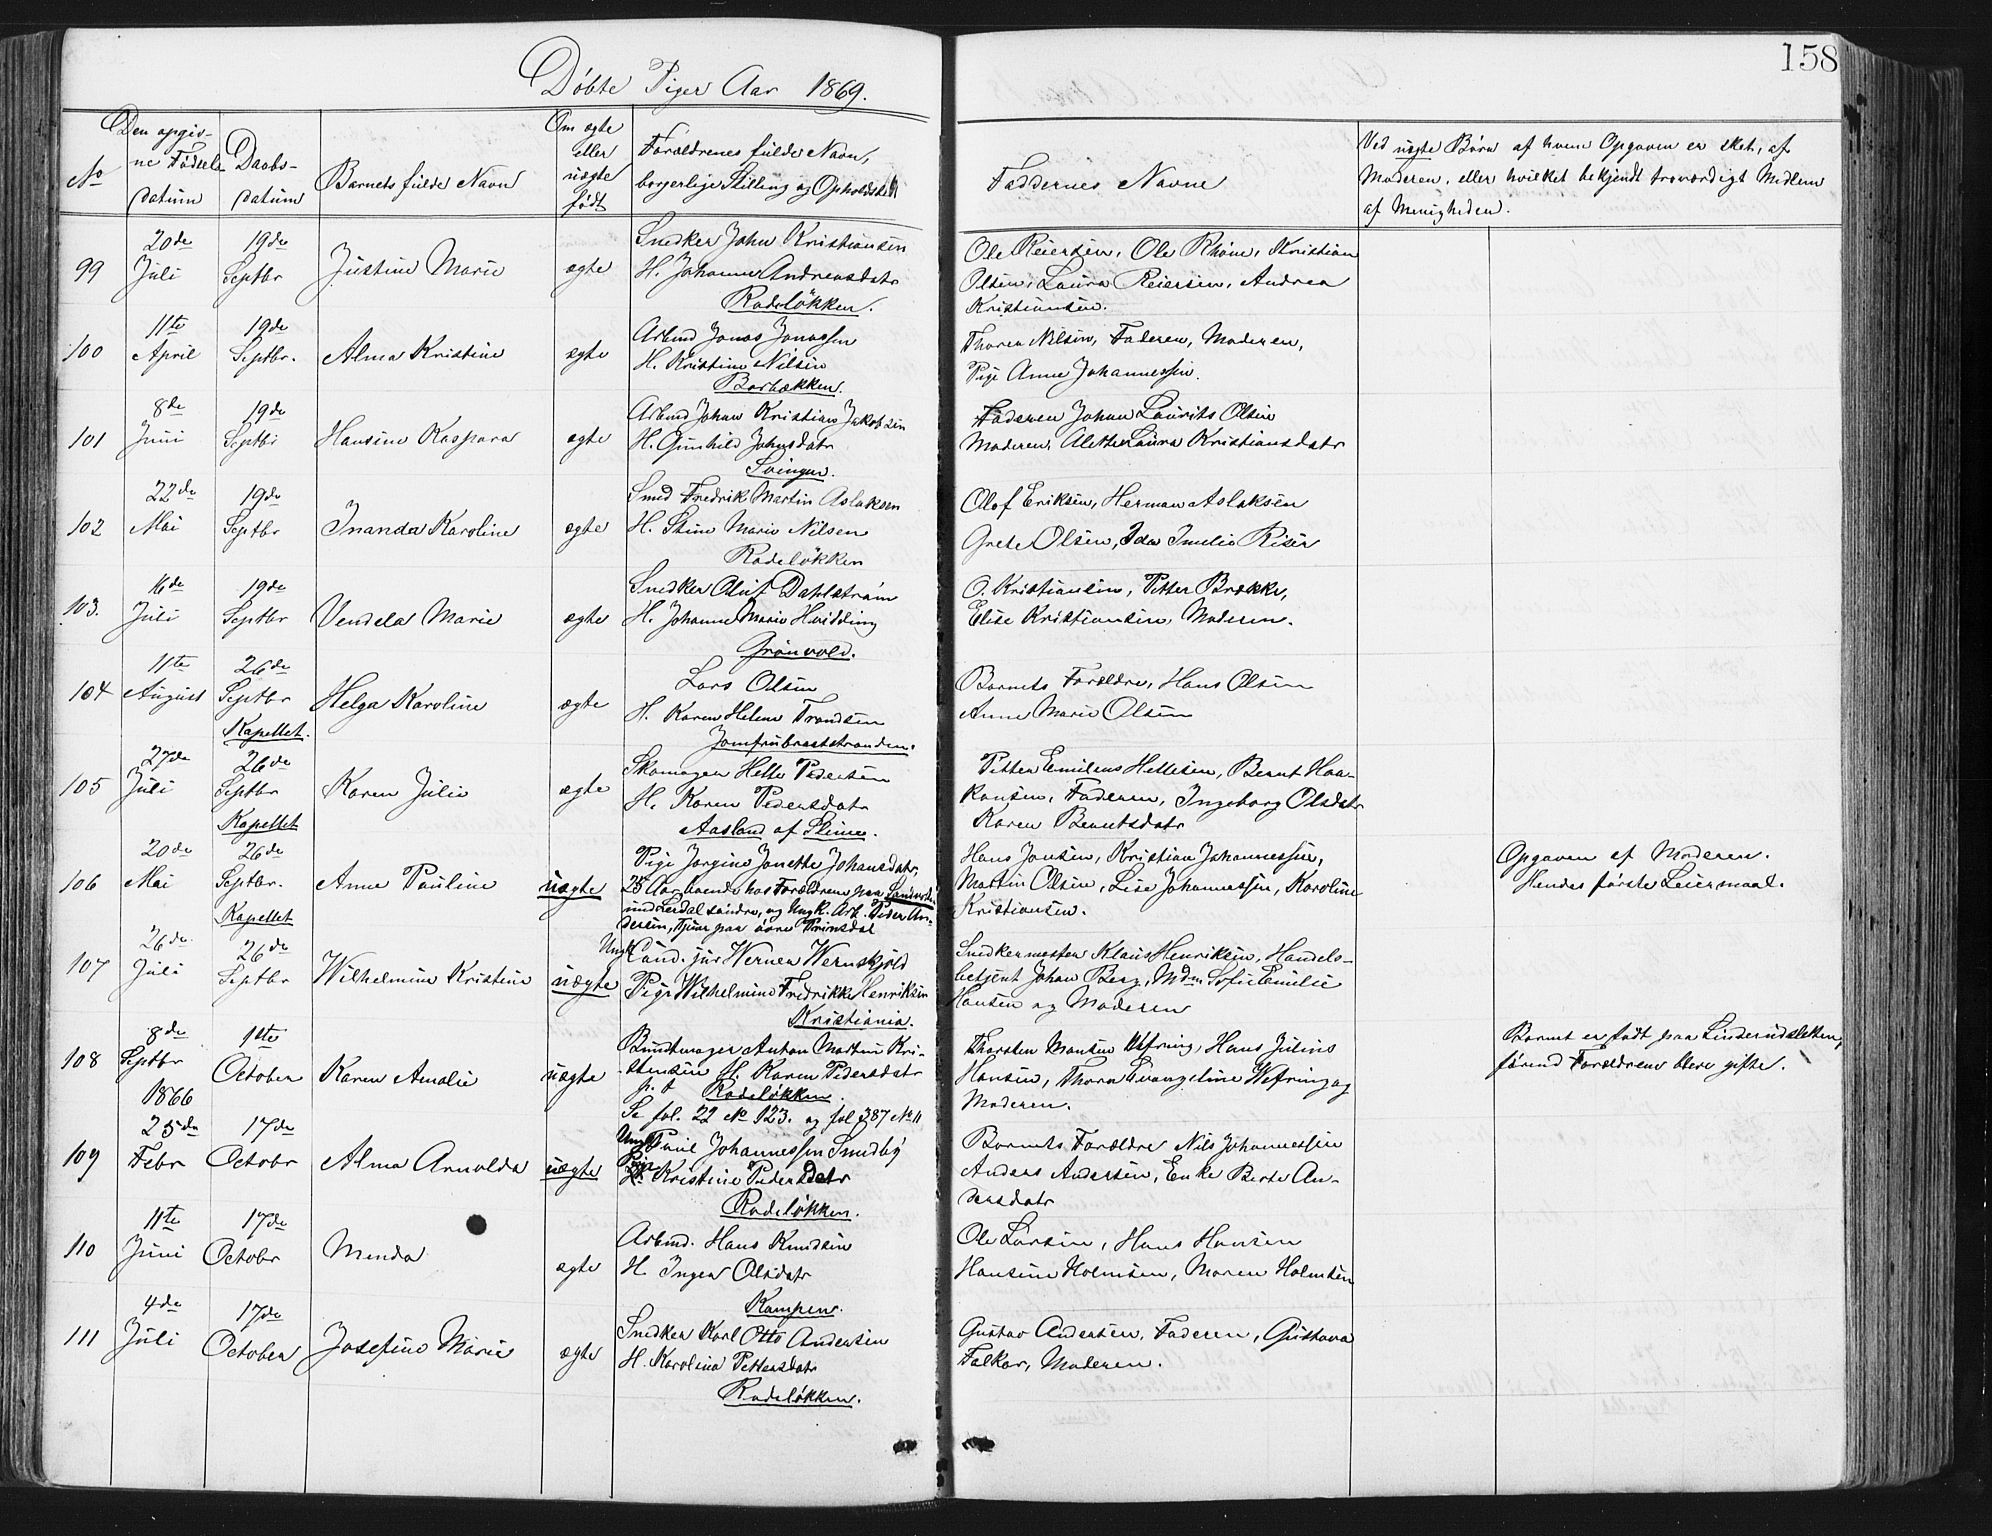 158
Döbte Piger Aar 1869.
No
Den opgiv-
ne Födsels
datum
Daabs-
datum
Barnets fulde Navn
Om ægte
eller
uægte
født
Forældrenes fulde Navn,
borgerlige Stilling og Opholdsted
Faddernes Navne
Ved uægte Börn af hvem Opgaven er sket, af
Moderen, eller hvilket bekjendt troværdigt Medlem
af Menigheden.
99
20de
Juli
19de
Septbr
Justine Marie
ægte
Snedker John Kristiansen
H. Johanne Andreasdatr
Rodelökken.
Ole Reiersen, Ole Rhöne, Kristian
Olsen, Laura Reiersen, Andrea
Kristiansen.
100
11te
April
19de
Septbr.
Alma Kristine
ægte
Arbmd Jonas Jonassen
H. Kristine Nilsen
Borbækken.
Thoren Nilsen, Faderen, Moderen,
Pige Anne Johannessen.
101
8de
Juni
19de
Septbr
Hansine Kaspara
ægte
Arbmd Johan Kristian Jakobsen
H. Gunhild Johnsdatr
Svingen.
Faderen Johan Laurits Olsen
Moderen, Alette Laura Kristiansdatr
102
22de
Mai
19de
Septbr
Inanda Karoline
ægte
Smed Fredrik Martin Aslaksen
H. Stine Marie Nilsen
Rodelökken
Olof Eriksen, Herman Aslaksen
Grete Olsen, Ida Imilie Riser
103.
16de
Juli
19de
Septbr
Vendela Marie
ægte
Snedker Oluf Dahlström
H. Johanne Marie Hvidding
Grönvold.
O. Kristiansen, Petter Brække,
Elise Kristiansen, Moderen.
104
11te
August
26de
Septbr
Kapellet.
Helga Karoline
ægte
Lars Olsen
H. Karen Helene Trondsen
Jomfrubraatstranden.
Barnets Forældre, Hans Olsen
Anne Marie Olsen
105
27de
Juli
26de
Septbr
Kapellet
Karen Julie
ægte
Skomager Helle Pedersen
H. Karen Pedersdatr
Aasland af Slime.
Petter Emilius Hellesen, Bernt Haa-
konsen, Faderen, Ingeborg Olsdatr
Karen Berntsdatr
106
20de
Mai
26de
Septbr.
Kapellet
Anne Pauline
uægte
Pige Jorgine Jonette Johansdatr,
25 Aar boende hos Forældrene paa
und Lerdal söndre, og Ungk. Arb. Peder An-
dersen, tjener paa övre Prinsdal
Hans Jonsen, Kristian Johannessen,
Martin Olsen, Lise Johannessen, Karoline
Kristiansen.
Opgaven af Moderen.
Hendes förste Leiermaal.
107
26de
Juli
26de
Septbr
Wilhelmine Kristine
uægte
Ungk Cand. jur Werner Wernskjöld
Pige Wilhelmine Fredrikke Henriksen
Kristiania.
Snedkermester Klaus Henriksen, Handels-
betjent Johan Berg, Mdm Sofie Emilie
Hansen og Moderen
108
8de
Septbr
1866
1ste
October
Karen Amalie
uægte
Bundtmager Anton Martin Kri-
stensen H. Karen Pedersdatr
p. t Rodelökken.
Se fol. 22 No 123. og fol 387 No 11
Thorsten Monsen Wefring, Hans Julius
Hansen, Thora Evangeline Wefring og
Moderen.
Barnet er födt paa Linderudsletten,
förend Forældrene bleve gifte.
109
25de
Febr
17de
Octobr
Alma Arnolda
uægte
Ungk Emil Johannessen Smedby
Pige Kristine Pedersdatr
Rodelökken.
Barnets Forældre Nils Johannessen
Anders Andersen, Enke Berte An-
dersdatr
110
11te
Juni
17de
Octobr
Menda
ægte
Arbmd. Hans Knudsen
H Inger Olsdatr
Kampen.
Ole Larsen, Hans Hansen
Hansine Holmsen, Maren Holmsen
111
4de
Juli
17de
October
Josefine Marie
ægte
Snedker Karl Otto Andersen
H. Karolina Pettersdatr
Rodelökken.
Gustav Andersen, Faderen, Gustava
Falkar, Moderen.